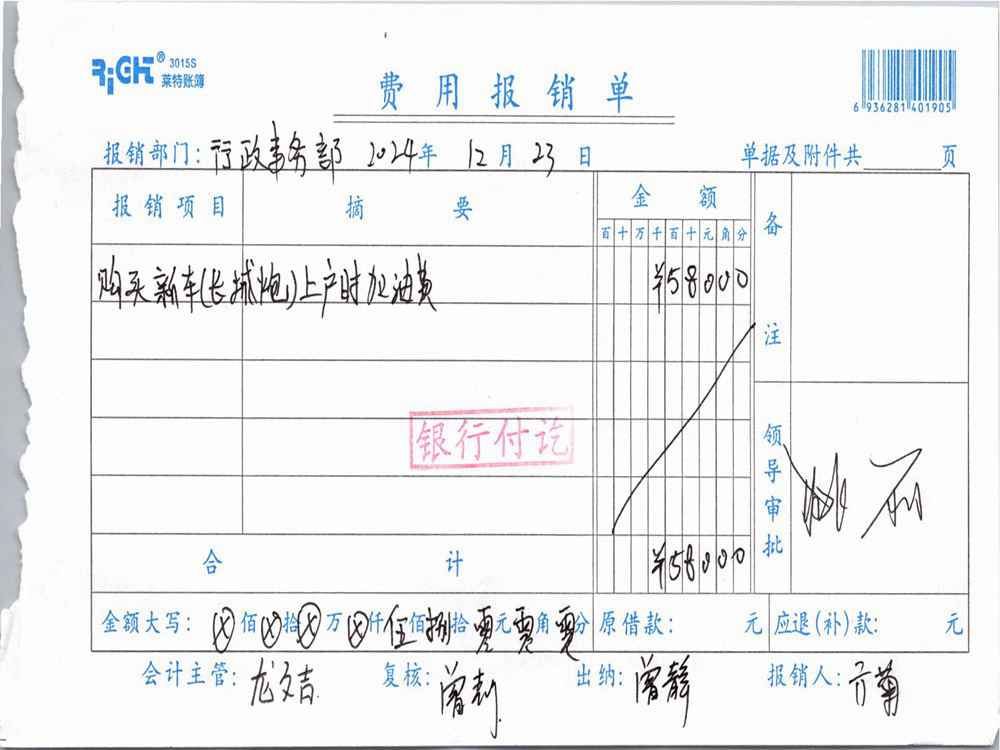 RiGHT® 3015S
莱特账簿
费用报销单
6 936281 401905
报销部门：行政事务部 2024年 12月 23日 单据及附件共 页
报销项目 摘要 金额 备注
百十万千百十元角分
购买新车(长城炮)上户时加油费 ¥58000
银行付讫
领导审批
合计 ¥58000
金额大写：ⓧ佰ⓧ拾ⓧ万ⓧ仟伍佰捌拾零元零角零分 原借款： 元 应退(补)款： 元
会计主管：龙文吉 复核：曾莉 出纳：曾静 报销人：